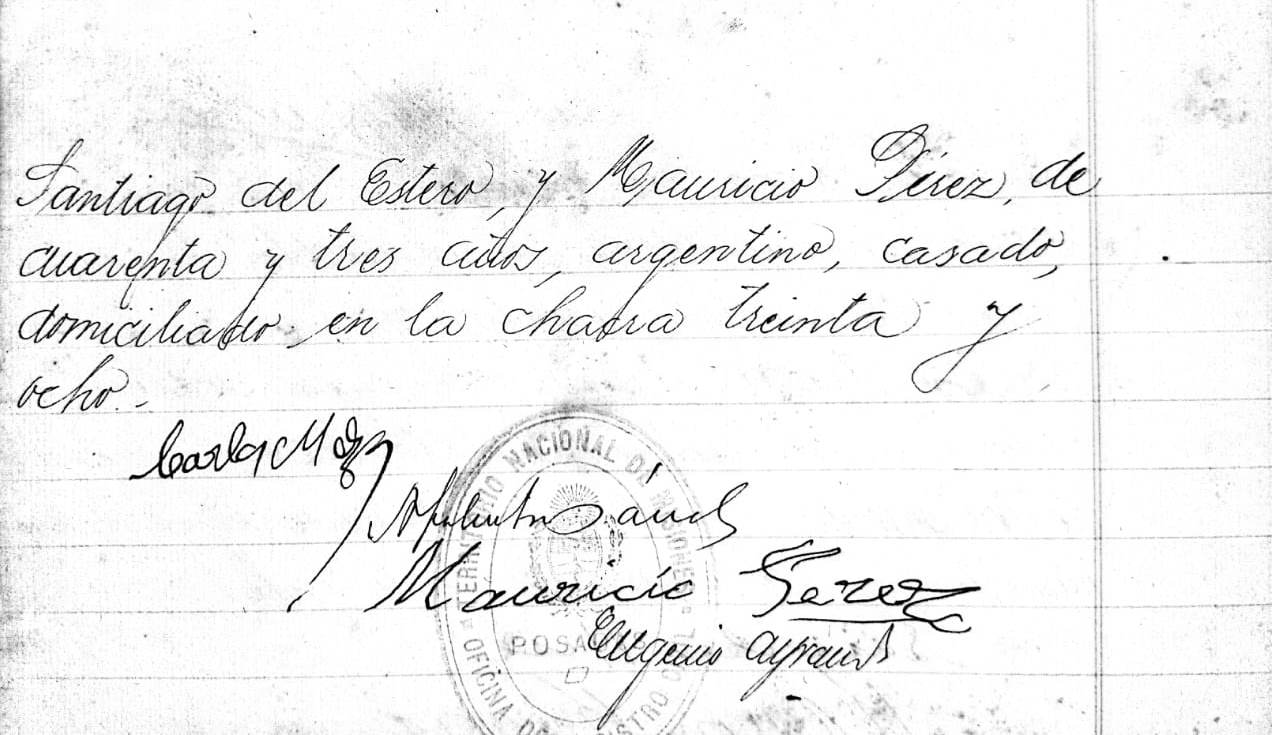 Santiago del Estero, y Mauricio Pérez, de
cuarenta y tres años, argentino, casado,
domiciliado en la chacra treinta y
ocho.-
Sánch
Mauricio Perez
Eugenio
TERRITORIO NACIONAL DE MISIONES
POSA
OFICINA DEL REGISTRO